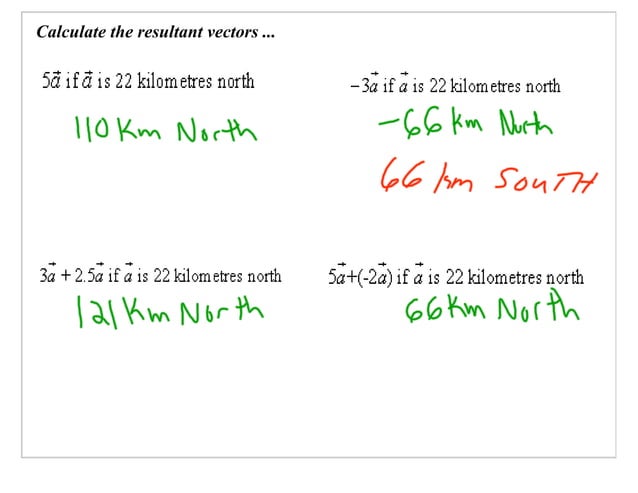 Calculate the resultant vectors ...
5a⃗ if a⃗ is 22 kilometres north
110 Km North
−3a⃗ if a⃗ is 22 kilometres north
-66 km North
66 km SOUTH
3a⃗ + 2.5a⃗ if a⃗ is 22 kilometres north
121 Km North
5a⃗+(-2a⃗) if a⃗ is 22 kilometres north
66 Km North